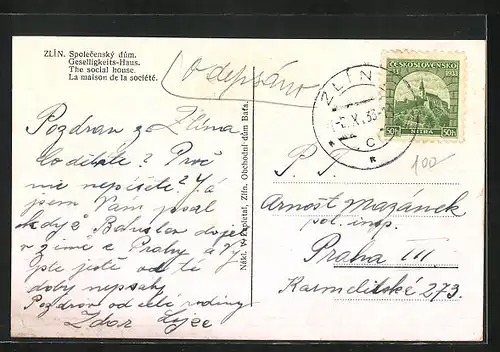 ZLÍN. Společenský dům.
Geselligkeits-Haus.
The social house.
La maison de la société.
odepsáno
Pozdrav ze Zlína
Co děláte? Proč
nic nepíšete? Já
jsem Vám psal
když Bohuslav dojel
v zimě z Prahy a Vy
jste ještě od té
doby nepsali
Pozdrav od celé rodiny
Zdar
Nákl. V. Zapletal, Zlín. Obchodní dům Baťa.
ČESKOSLOVENSKO
50h NITRA 50h
ZLÍN
100-
P. T.
Arnošt Mazánek
pol. insp.
Praha III
Karmelitská 273.